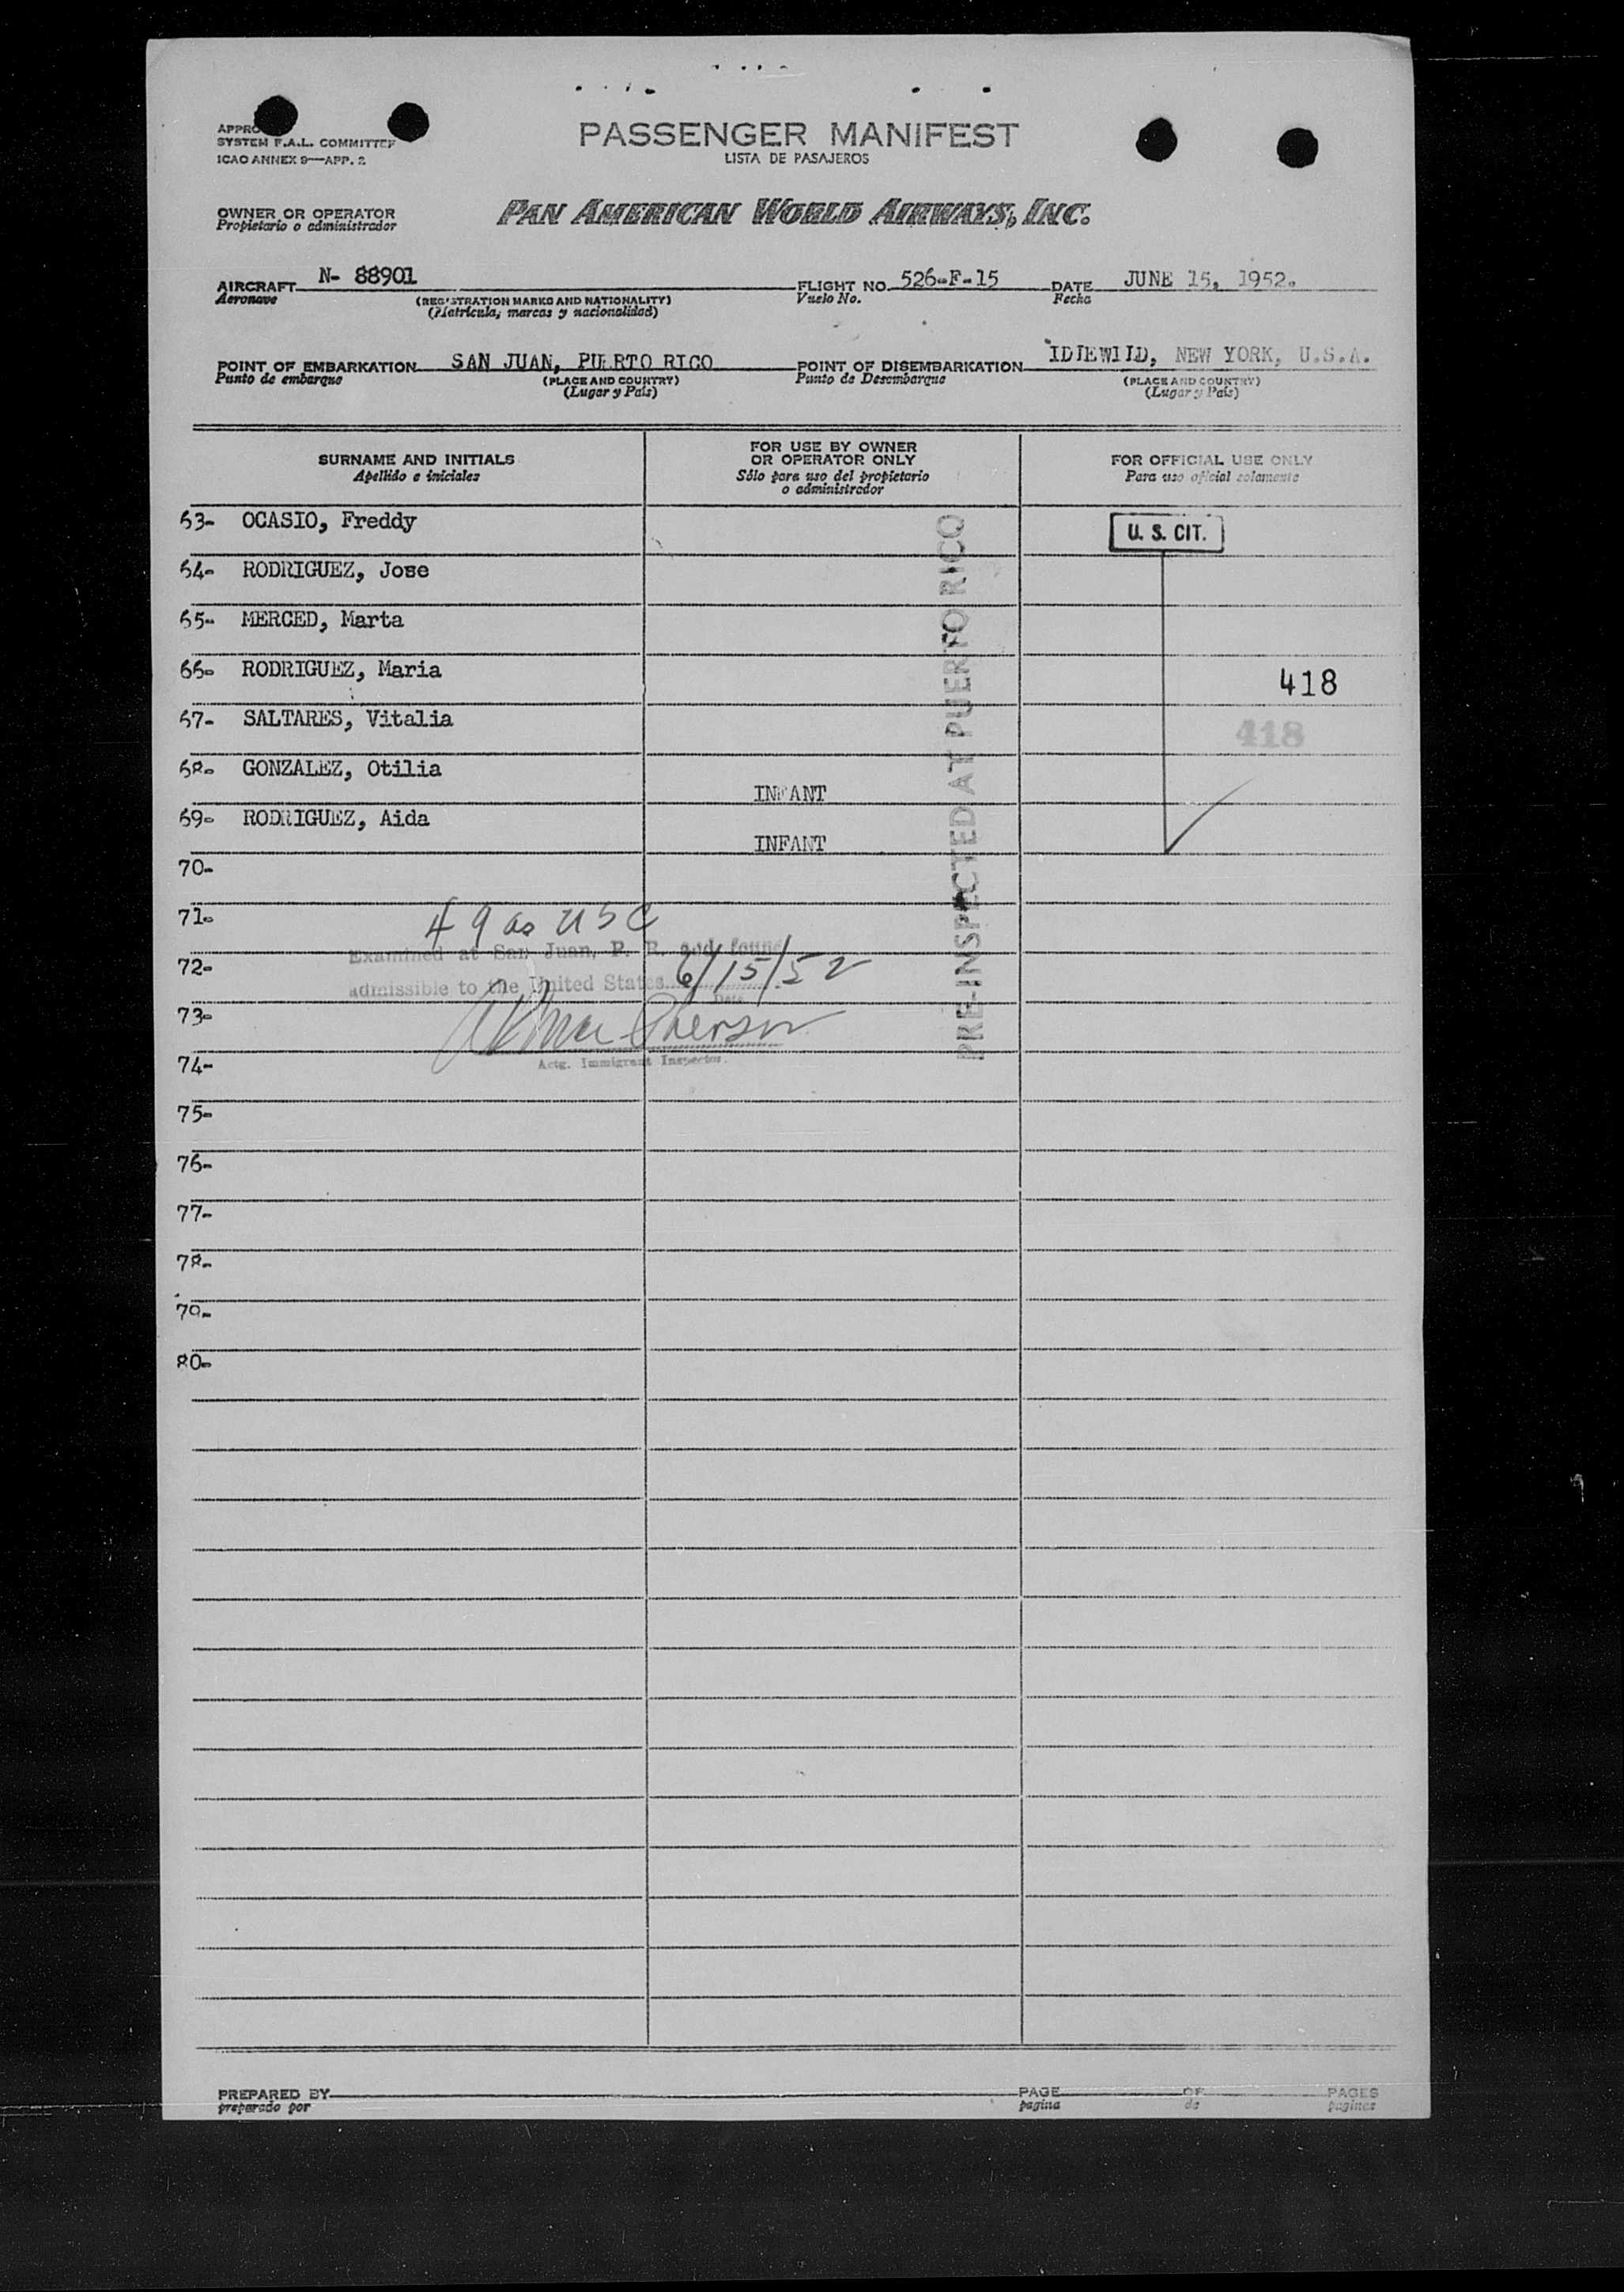 PASSENGER MANIFEST
LISTA DE PASAJEROS
SYSTEM F.A.L. COMMITTEE
ICAO ANNEX 9—APP. 2
OWNER OR OPERATOR
Propietario o administrador
PAN AMERICAN WORLD AIRWAYS, INC.
AIRCRAFT N- 88901 FLIGHT NO. 526-F-15 DATE JUNE 15, 1952.
Aeronave (REGISTRATION MARKS AND NATIONALITY) Vuelo No. Fecha
(Matrícula, marcas y nacionalidad)
POINT OF EMBARKATION SAN JUAN, PUERTO RICO POINT OF DISEMBARKATION IDLEWILD, NEW YORK, U.S.A.
Punto de embarque (PLACE AND COUNTRY) Punto de Desembarque (PLACE AND COUNTRY)
(Lugar y País) (Lugar y País)
SURNAME AND INITIALS
Apellido e iniciales
FOR USE BY OWNER
OR OPERATOR ONLY
Sólo para uso del propietario
o administrador
FOR OFFICIAL USE ONLY
Para uso oficial solamente
63- OCASIO, Freddy U. S. CIT.
64- RODRIGUEZ, Jose
65- MERCED, Marta
66- RODRIGUEZ, Maria 418
67- SALTARES, Vitalia 418
68- GONZALEZ, Otilia INFANT
69- RODRIGUEZ, Aida INFANT
70-
71- 49 as USC
Examined at San Juan, P. R. and found
72- 6/15/52
admissible to the United States
Date
73-
Actg. Immigrant Inspector.
74-
75-
76-
77-
78-
79-
80-
PRE-INSPECTED AT PUERTO RICO
PREPARED BY PAGE OF PAGES
preparado por pagina de paginas